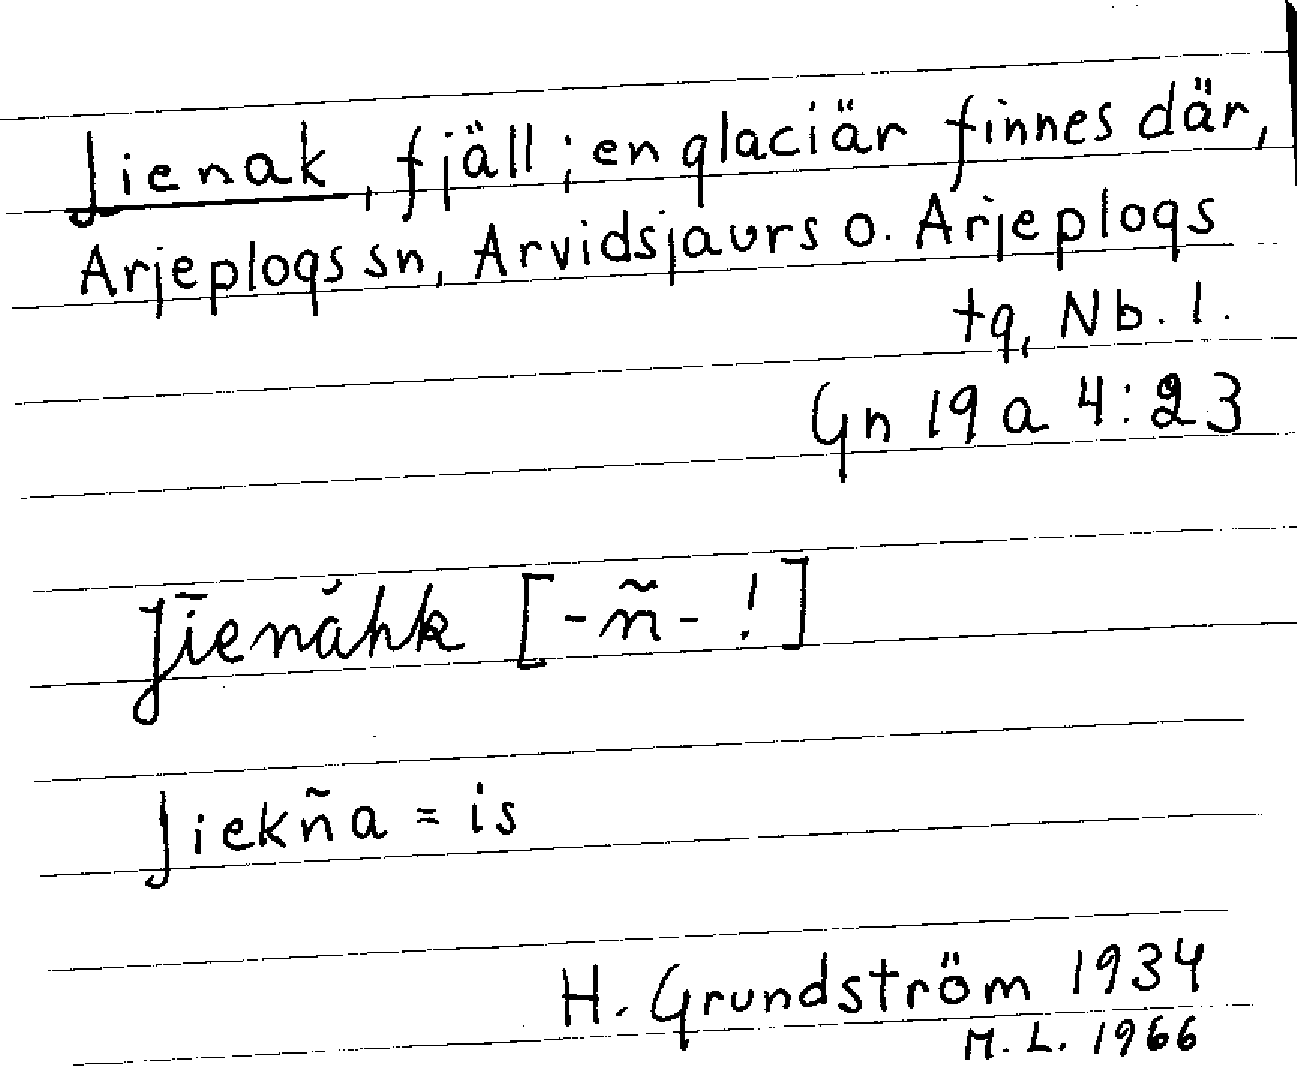 Jienak, fjäll; en glaciär finnes där,
Arjeplogs sn, Arvidsjaurs o. Arjeplogs
tg, Nb. l.
Gn 19 a 4:23
Jīenåhk [-ñ- !]
Jiekña = is
H. Grundström 1934
M. L. 1966